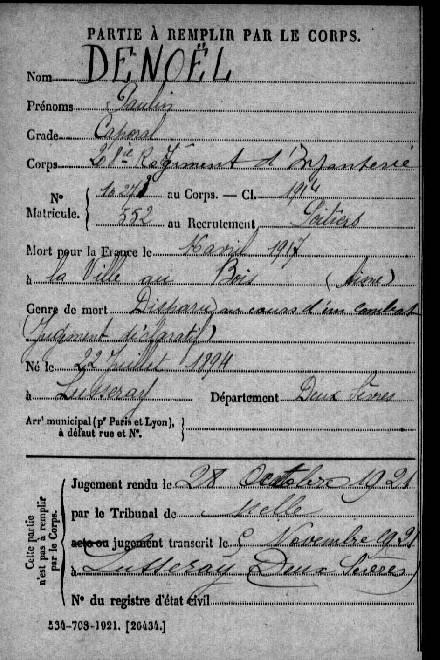 PARTIE À REMPLIR PAR LE CORPS.
Nom DENOËL
Prénoms Paulin
Grade Caporal
Corps Régiment d'Infanterie
N° Matricule. au Corps. — Cl. 1914
552 au Recrutement Poitiers
Mort pour la France le avril 1917
à la Ville au Bois (Aisne)
Genre de mort Disparu au cours d'un combat
(Jugement déclaratif)
Né le 22 Juillet 1894
à Lusseray Département Deux Sèvres
Arr' municipal (p' Paris et Lyon), à défaut rue et N°.
Cette partie n'est pas à remplir par le Corps.
Jugement rendu le 28 Octobre 1921
par le Tribunal de Melle
acte ou jugement transcrit le Novembre 1921
à Lusseray (Deux Sèvres)
N° du registre d'état civil
534-708-1921. [26434.]